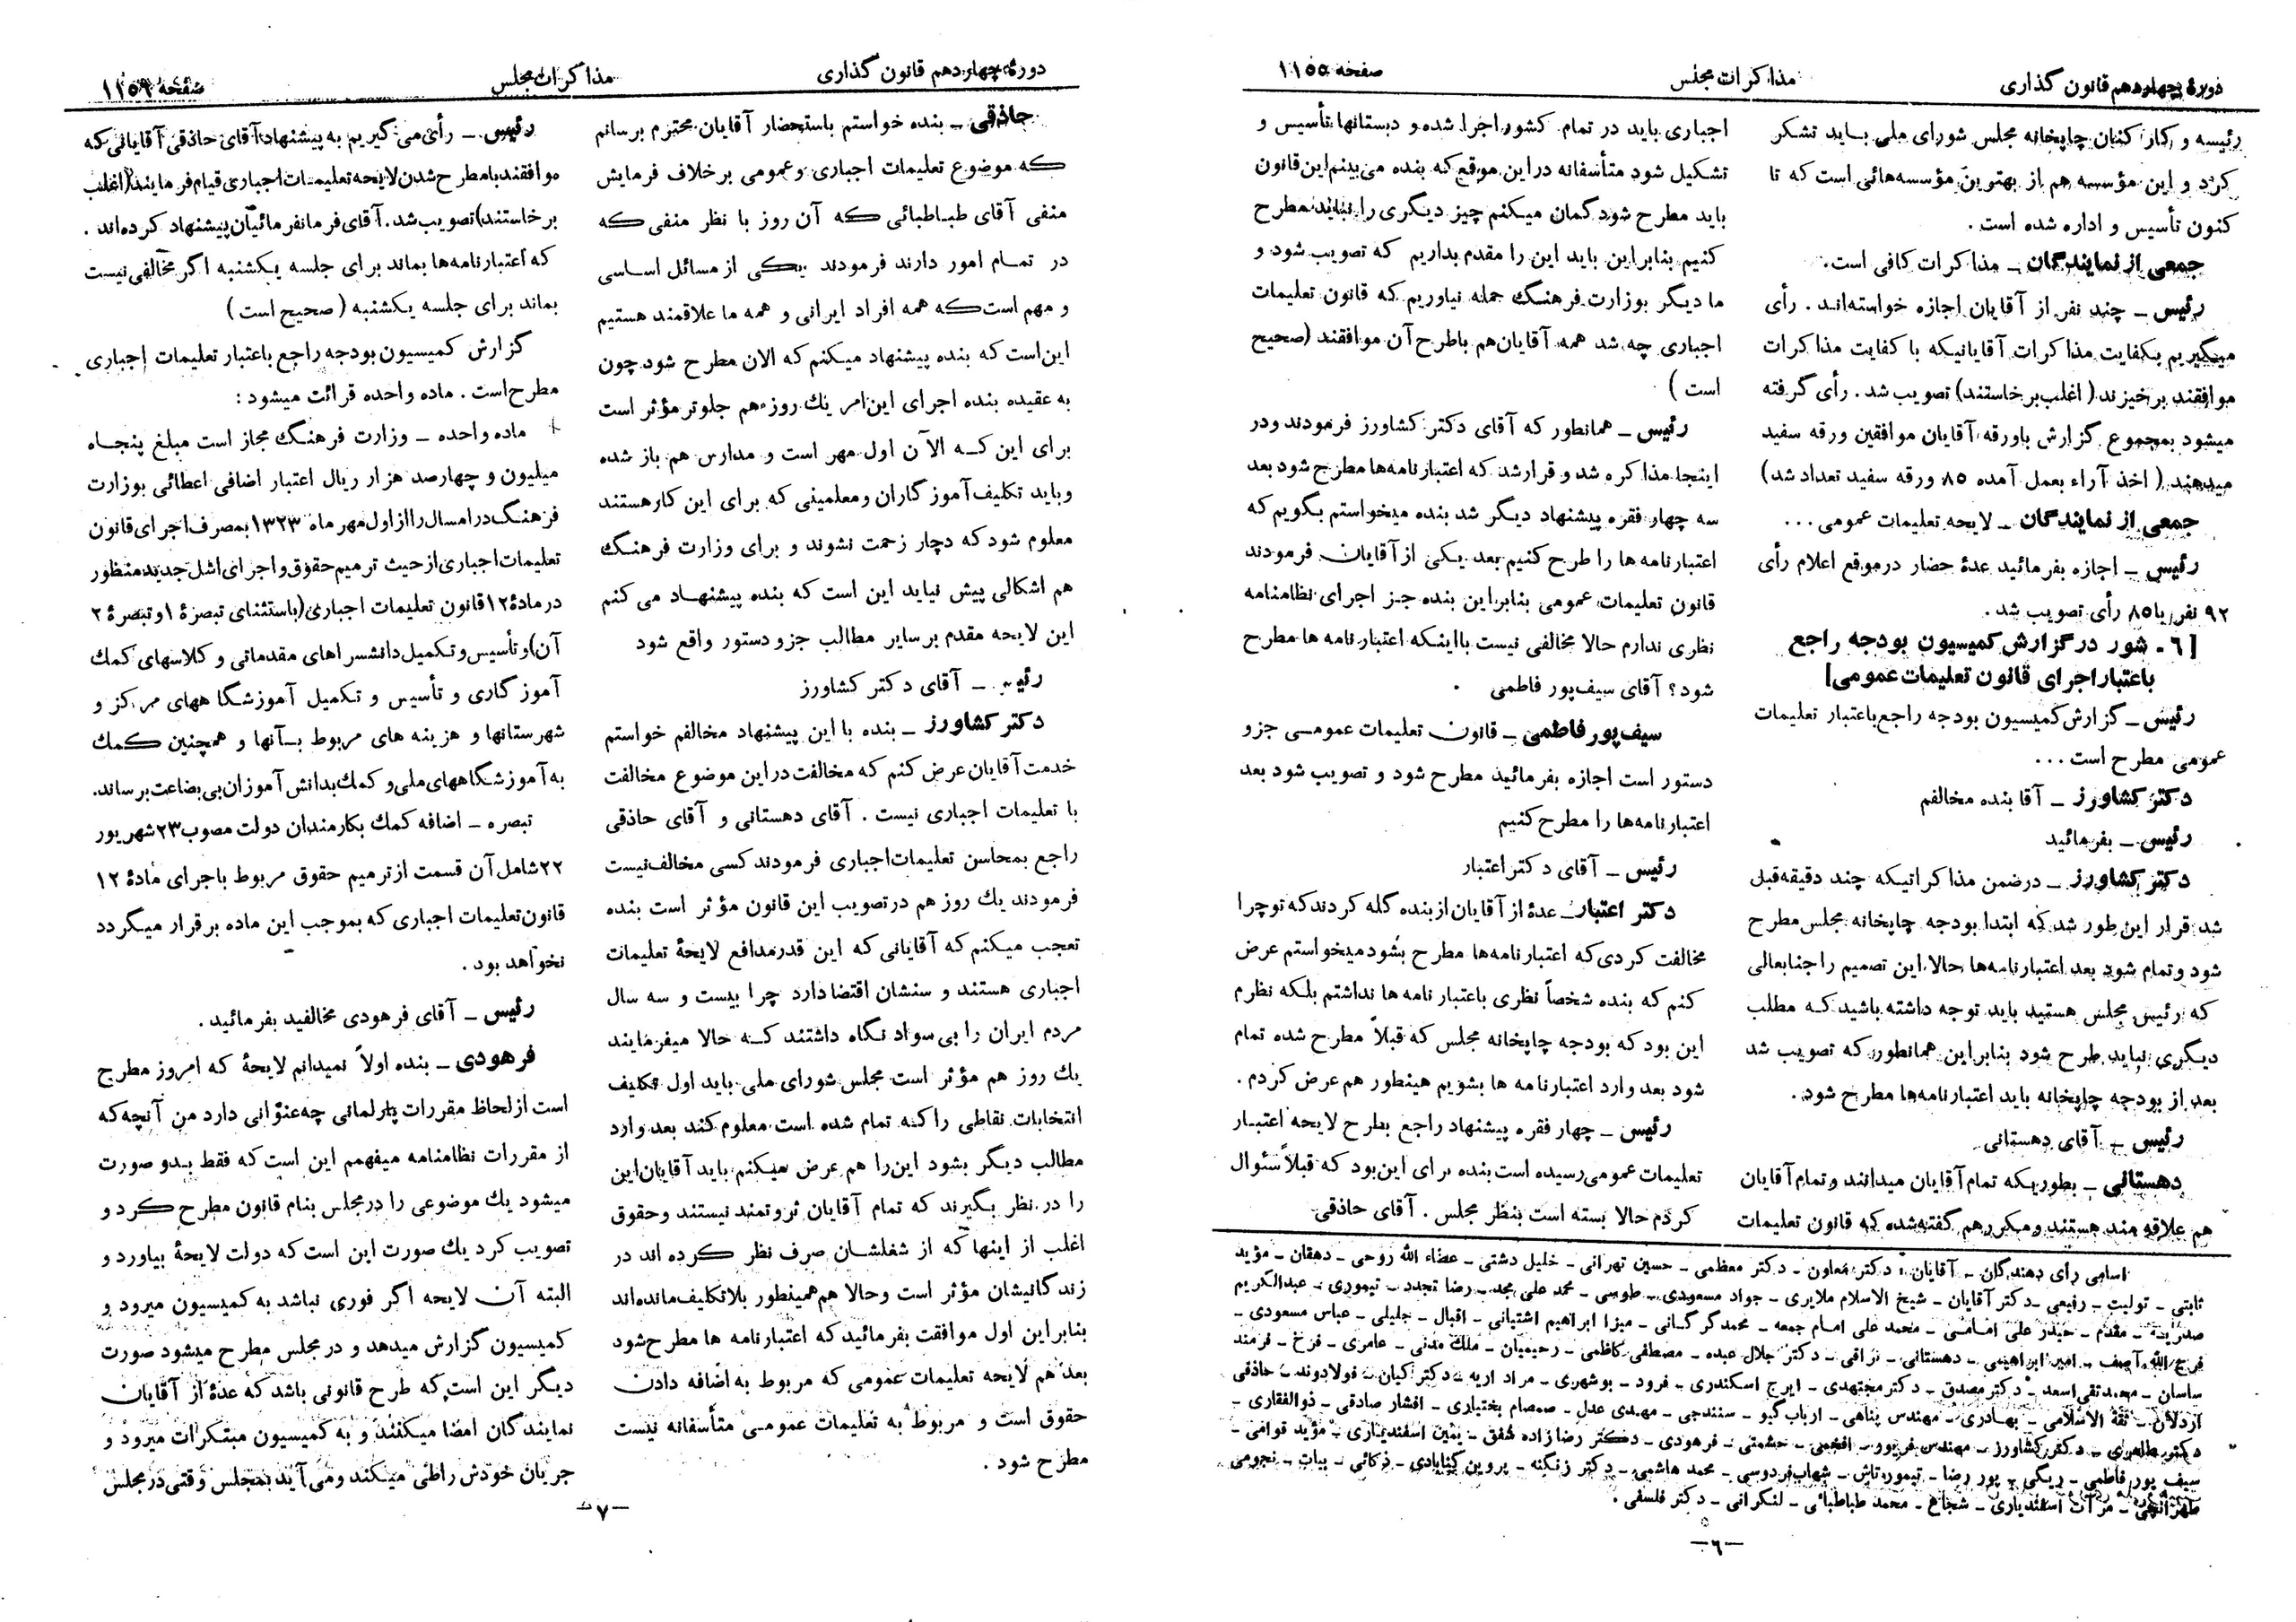 دورهٔ چهاردهم قانون گذاری
مذاکرات مجلس
صفحه ۱۱۵۵
رئیسه و کارکنان چاپخانه مجلس شورای ملی بـاید تشکر
کرد و این مؤسسه هم از بهترین مؤسسه‌هائی است که تا
کنون تأسیس و اداره شده است.
جمعی از نمایندگان ـ مذاکرات کافی است.
رئیس ـ چند نفر از آقایان اجازه خواسته‌انـد . رأی
میگیریم بکفایت مذاکرات آقایانیکه با کفایت مذاکرات
موافقند برخیزند (اغلب برخاستند) تصویب شد . رأی گرفته
میشود بمجموع گزارش باورقه آقایان موافقین ورقه سفید
میدهند ( اخذ آراء بعمل آمده ۸۵ ورقه سفید تعداد شد)
جمعی از نمایندگان ـ لایحه تعلیمات عمومی ...
رئیس ـ اجازه بفرمائید عدهٔ حضار در موقع اعلام رأی
۹۲ نفر با ۸۵ رأی تصویب شد .
[ ٦ ـ شور در گزارش کمیسیون بودجه راجع
باعتبار اجرای قانون تعلیمات عمومی]
رئیس ـ گزارش کمیسیون بودجه راجع باعتبار تعلیمات
عمومی مطرح است ...
دکتر کشاورز ـ آقا بنده مخالفم
رئیس ـ بفرمائید
دکتر کشاورز ـ در ضمن مذاکراتیکه چند دقیقه قبل
شد قرار این طور شد که ابتدا بودجه چاپخانه مجلس مطرح
شود و تمام شود بعد اعتبارنامه‌ها حالا این تصمیم را جنابعالی
که رئیس مجلس هستید باید توجه داشته باشید کـه مطلب
دیگری نباید طرح شود بنابر این همانطور که تصویب شد
بعد از بودجه چاپخانه باید اعتبارنامه‌ها مطرح شود.
رئیس ـ آقای دهستانی
دهستانی ـ بطوریکه تمام آقایان میدانند و تمام آقایان
هم علاقه مند هستند و مکرر هم گفته شده که قانون تعلیمات
اجباری باید در تمام کشور اجرا شده و دبستانها تأسیس و
تشکیل شود متأسفانه در این موقع که بنده می‌بینم این قانون
باید مطرح شود گمان میکنم چیز دیگری را نباید مطرح
کنیم بنابر این باید این را مقدم بداریم که تصویب شود و
ما دیگر بوزارت فرهنگ حمله نیاوریم که قانون تعلیمات
اجباری چه شد همه آقایان هم باطرح آن موافقند (صحیح
است )
رئیس ـ همانطور که آقای دکتر کشاورز فرمودند و در
اینجا مذاکره شد و قرار شد که اعتبارنامه‌ها مطرح شود بعد
سه چهار فقره پیشنهاد دیگر شد بنده میخواستم بگویم که
اعتبارنامه ها را طرح کنیم بعد یکی از آقایان فرمودند
قانون تعلیمات عمومی بنابر این بنده جـز اجرای نظامنامه
نظری ندارم حالا مخالفی نیست با اینکه اعتبار نامه ها مطرح
شود؟ آقای سیف‌پور فاطمی .
سیف پور فاطمی ـ قانون تعلیمات عمومی جزو
دستور است اجازه بفرمائید مطرح شود و تصویب شود بعد
اعتبارنامه‌ها را مطرح کنیم
رئیس ـ آقای دکتر اعتبار
دکتر اعتبار ـ عدهٔ از آقایان از بنده گله کردند که تو چرا
مخالفت کردی که اعتبارنامه‌ها مطرح بشود میخواستم عرض
کنم که بنده شخصاً نظری باعتبار نامه ها نداشتم بلکه نظرم
این بود که بودجه چاپخانه مجلس که قبلاً مطرح شده تمام
شود بعد وارد اعتبارنامه ها بشویم همینطور هم عرض کردم .
رئیس ـ چهار فقره پیشنهاد راجع بطرح لایحه اعتبـار
تعلیمات عمومی رسیده است بنده برای این بود که قبلاً سئوال
کردم حالا بسته است بنظر مجلس . آقای حاذقی
اسامی رأی دهندگان ـ آقایان : دکتر معاون ـ دکتر معظمی ـ حسین تهرانی ـ خلیل دشتی ـ عطاء الله روحی ـ دهقان ـ مؤید
ثابتی ـ تولیت ـ رفیعی ـ دکتر آقایان ـ شیخ الاسلام ملایری ـ جواد مسعودی ـ طوسی ـ محمد علی مجد ـ رضا تجدد ـ تیموری ـ عبدالکریم
صدریه ـ مقدم ـ حیدر علی امامی ـ محمد علی امام جمعه ـ محمد گرگانی ـ میرزا ابراهیم آشتیانی ـ اقبال ـ جلیلی ـ عباس مسعودی ـ
فرج الله آصف ـ امیر ابراهیمی ـ دهستانی ـ نراقی ـ دکتر جلال عبده ـ مصطفی کاظمی ـ رحیمیان ـ ملک مدنی ـ عامری ـ فرخ ـ فرمند
ساسان ـ محمد تقی اسعد ـ دکتر مصدق ـ دکتر مجتهدی ـ ایرج اسکندری ـ فرود ـ بوشهری ـ مراد اریه ـ دکتر کیان ـ فولادوند ـ حاذقی
اردلان ـ ثقة الاسلامی ـ بهادری ـ مهندس پناهی ـ ارباب گیو ـ سنندجی ـ مهدی عدل ـ صمصام بختیاری ـ افشار صادقی ـ ذوالفقاری ـ
دکتر طاهری ـ دکتر کشاورز ـ مهندس فریور ـ افخمی ـ حشمتی ـ فرهودی ـ دکتر رضا زاده شفق ـ یمین اسفندیاری ـ مؤید قوامی ـ
سیف پور فاطمی ـ ریگی ـ پور رضا ـ تیمورتاش ـ شهاب فردوسی ـ محمد هاشمی ـ دکتر زنگنه ـ پروین گنابادی ـ ذکائی ـ بیات ـ نجومی
طهرانچی ـ مرآت اسفندیاری ـ شجاع ـ محمد طباطبائی ـ لنکرانی ـ دکتر فلسفی .
ـ٦ـ
دورهٔ چهاردهم قانون گذاری
مذاکرات مجلس
صفحه
حاذقی ـ بنده خواستم باستحضار آقایان محترم برسانم
که موضوع تعلیمات اجباری و عمومی برخلاف فرمایش
منفی آقای طباطبائی که آن روز با نظر منفی که
در تمـام امور دارند فرمودند یکی از مسائل اساسی
و مهم است که همه افراد ایرانی و همه ما علاقمند هستیم
این است که بنده پیشنهاد میکنم که الان مطرح شود چون
به عقیده بنده اجرای این امر یک روز هم جلوتر مؤثر است
برای این کـه الآن اول مهر است و مدارس هم باز شده
و باید تکلیف آموزگاران و معلمینی که برای این کار هستند
معلوم شود که دچار زحمت نشوند و برای وزارت فرهنگ
هم اشکالی پیش نیاید این است که بنده پیشنهـاد می کنم
این لایحه مقدم بر سایر مطالب جزو دستور واقع شود
رئیس ـ آقای دکتر کشاورز
دکتر کشاورز ـ بنده با این پیشنهاد مخالفم خواستم
خدمت آقایان عرض کنم که مخالفت در این موضوع مخالفت
با تعلیمات اجباری نیست . آقای دهستانی و آقای حاذقی
راجع بمحاسن تعلیمات اجباری فرمودند کسی مخالف نیست
فرمودند یک روز هم در تصویب این قانون مؤثر است بنده
تعجب میکنم که آقایانی که این قدر مدافع لایحهٔ تعلیمات
اجباری هستند و سنشان اقتضا دارد چرا بیست و سه سال
مردم ایران را بی سواد نگاه داشتند کـه حالا میفرمایند
یک روز هم مؤثر است مجلس شورای ملی باید اول تکلیف
انتخابات نقاطی را که تمام شده است معلوم کند بعد وارد
مطالب دیگر بشود این را هم عرض میکنم باید آقایان این
را در نظر بگیرند که تمام آقایان ثروتمند نیستند و حقوق
اغلب از اینها که از شغلشان صرف نظر کرده اند در
زندگانیشان مؤثر است و حالا هم همینطور بلاتکلیف مانده‌اند
بنابر این اول موافقت بفرمائید که اعتبارنامه ها مطرح شود
بعد هم لایحه تعلیمات عمومی که مربوط به اضافه دادن
حقوق است و مربوط به تعلیمات عمومی متأسفانه نیست
مطرح شود .
رئیس ـ رأی می گیریم به پیشنهاد آقای حاذقی آقایانی که
موافقند با مطرح شدن لایحه تعلیمـات اجباری قیام فرمایند (اغلب
برخاستند) تصویب شد . آقای فرمانفرمائیان پیشنهاد کرده‌اند .
که اعتبارنامه‌ها بماند برای جلسه یکشنبه اگر مخالفی نیست
بماند برای جلسه یکشنبه ( صحیح است )
گزارش کمیسیون بودجه راجع باعتبار تعلیمات اجباری
مطرح است . ماده واحده قرائت میشود :
ماده واحده ـ وزارت فرهنگ مجاز است مبلغ پنجـاه
میلیون و چهارصد هزار ریال اعتبار اضافی اعطائی بوزارت
فرهنگ در امسال را از اول مهر ماه ۱۳۲۳ بمصرف اجرای قانون
تعلیمات اجباری از حیث ترمیم حقوق و اجرای اشل جدید منظور
در مادهٔ ۱۲ قانون تعلیمات اجباری (باستثنای تبصرهٔ ۱ و تبصرهٔ ۲
آن) و تأسیس و تکمیل دانشسراهای مقدماتی و کلاسهای کمک
آموزگاری و تأسیس و تکمیل آموزشگاههای مرکز و
شهرستانها و هزینه های مربوط بـآنها و همچنین کمک
به آموزشگاههای ملی و کمک بدانش آموزان بی بضاعت برساند.
تبصره ـ اضافه کمک بکارمندان دولت مصوب ۲۳ شهریور
۲۲ شامل آن قسمت از ترمیم حقوق مربوط باجرای مادهٔ ۱۲
قانون تعلیمات اجباری که بموجب این ماده برقرار میگردد
نخواهد بود .
رئیس ـ آقای فرهودی مخالفید بفرمائید .
فرهودی ـ بنده اولاً نمیدانم لایحهٔ که امروز مطرح
است از لحاظ مقررات پارلمانی چه عنوانی دارد من آنچه که
از مقررات نظامنامه میفهمم این است که فقط بـدو صورت
میشود یک موضوعی را در مجلس بنام قانون مطرح کرد و
تصویب کرد یک صورت این است که دولت لایحهٔ بیاورد و
البته آن لایحه اگر فوری نباشد به کمیسیون میرود و
کمیسیون گزارش میدهد و در مجلس مطرح میشود صورت
دیگر این است که طرح قانونی باشد که عدهٔ از آقایان
نمایندگان امضا میکنند و به کمیسیون مبتکرات میرود و
جریان خودش را طی میکند و می آید بمجلس وقتی در مجلس
ـ۷ـ